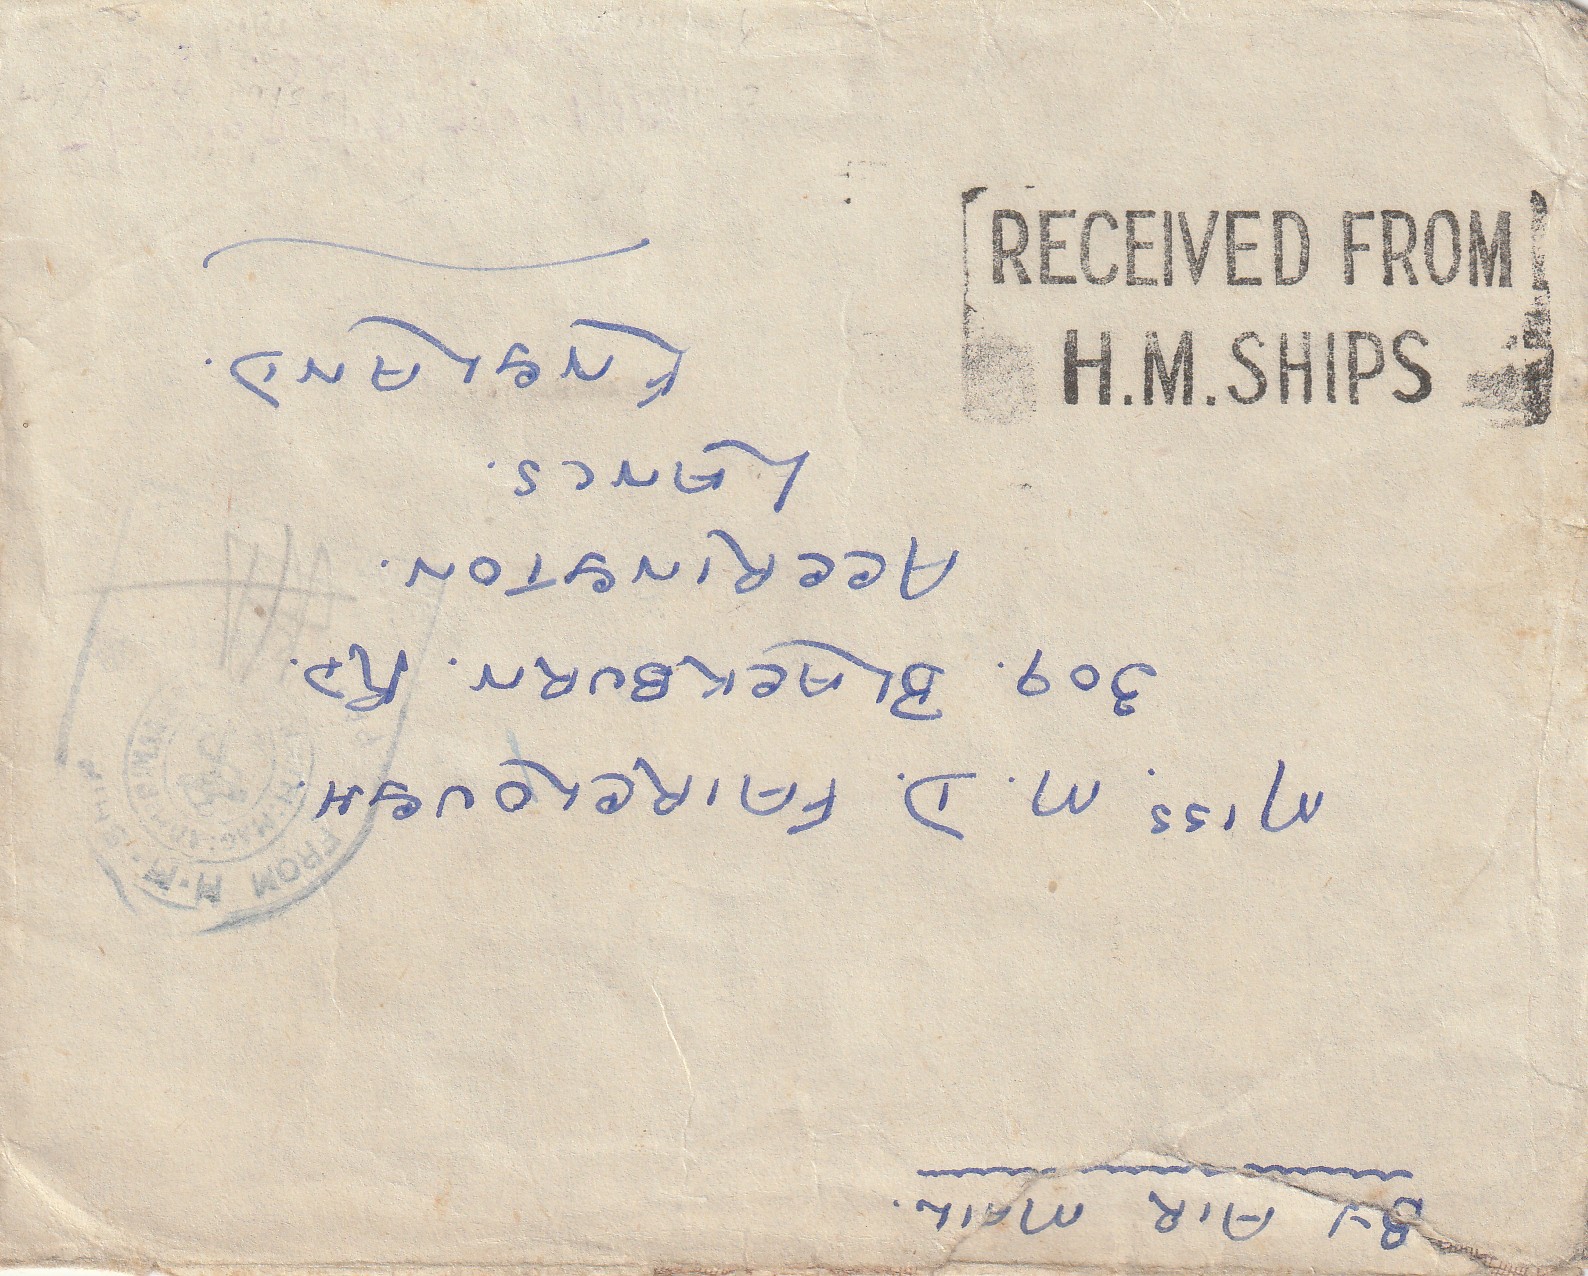 BY AIR MAIL.
MISS. M. D. FAIRCLOUGH.
309. BLACKBURN. RD.
ACCRINGTON.
LANCS.
ENGLAND.
RECEIVED FROM
H.M. SHIPS
FROM H.M. SHIPS